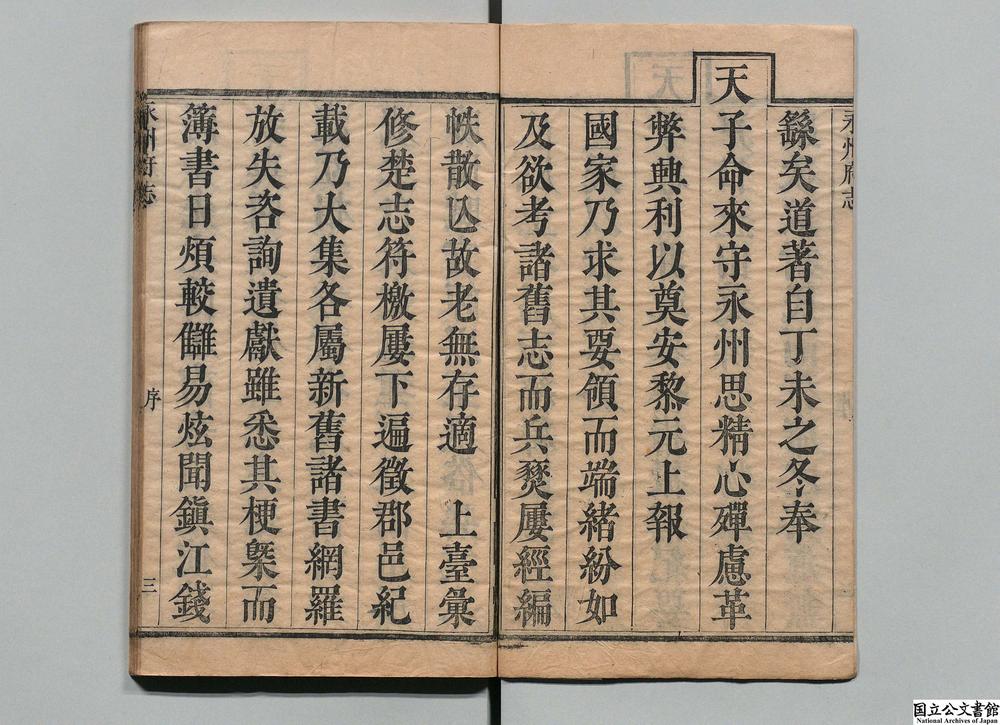 永州府志
繇矣道著自丁未之冬奉
天子命來守永州思精心殫慮革
弊興利以奠安黎元上報
國家乃求其要領而端緒紛如
及欲考諸舊志而兵燹屢經編
帙散亾故老無存適　上臺彙
修楚志符檄屢下遍徵郡邑紀
載乃大集各屬新舊諸書網羅
放失咨詢遺獻雖悉其梗槩而
簿書日煩較讎易炫聞鎭江錢
永州府志
序
三
国立公文書館
National Archives of Japan